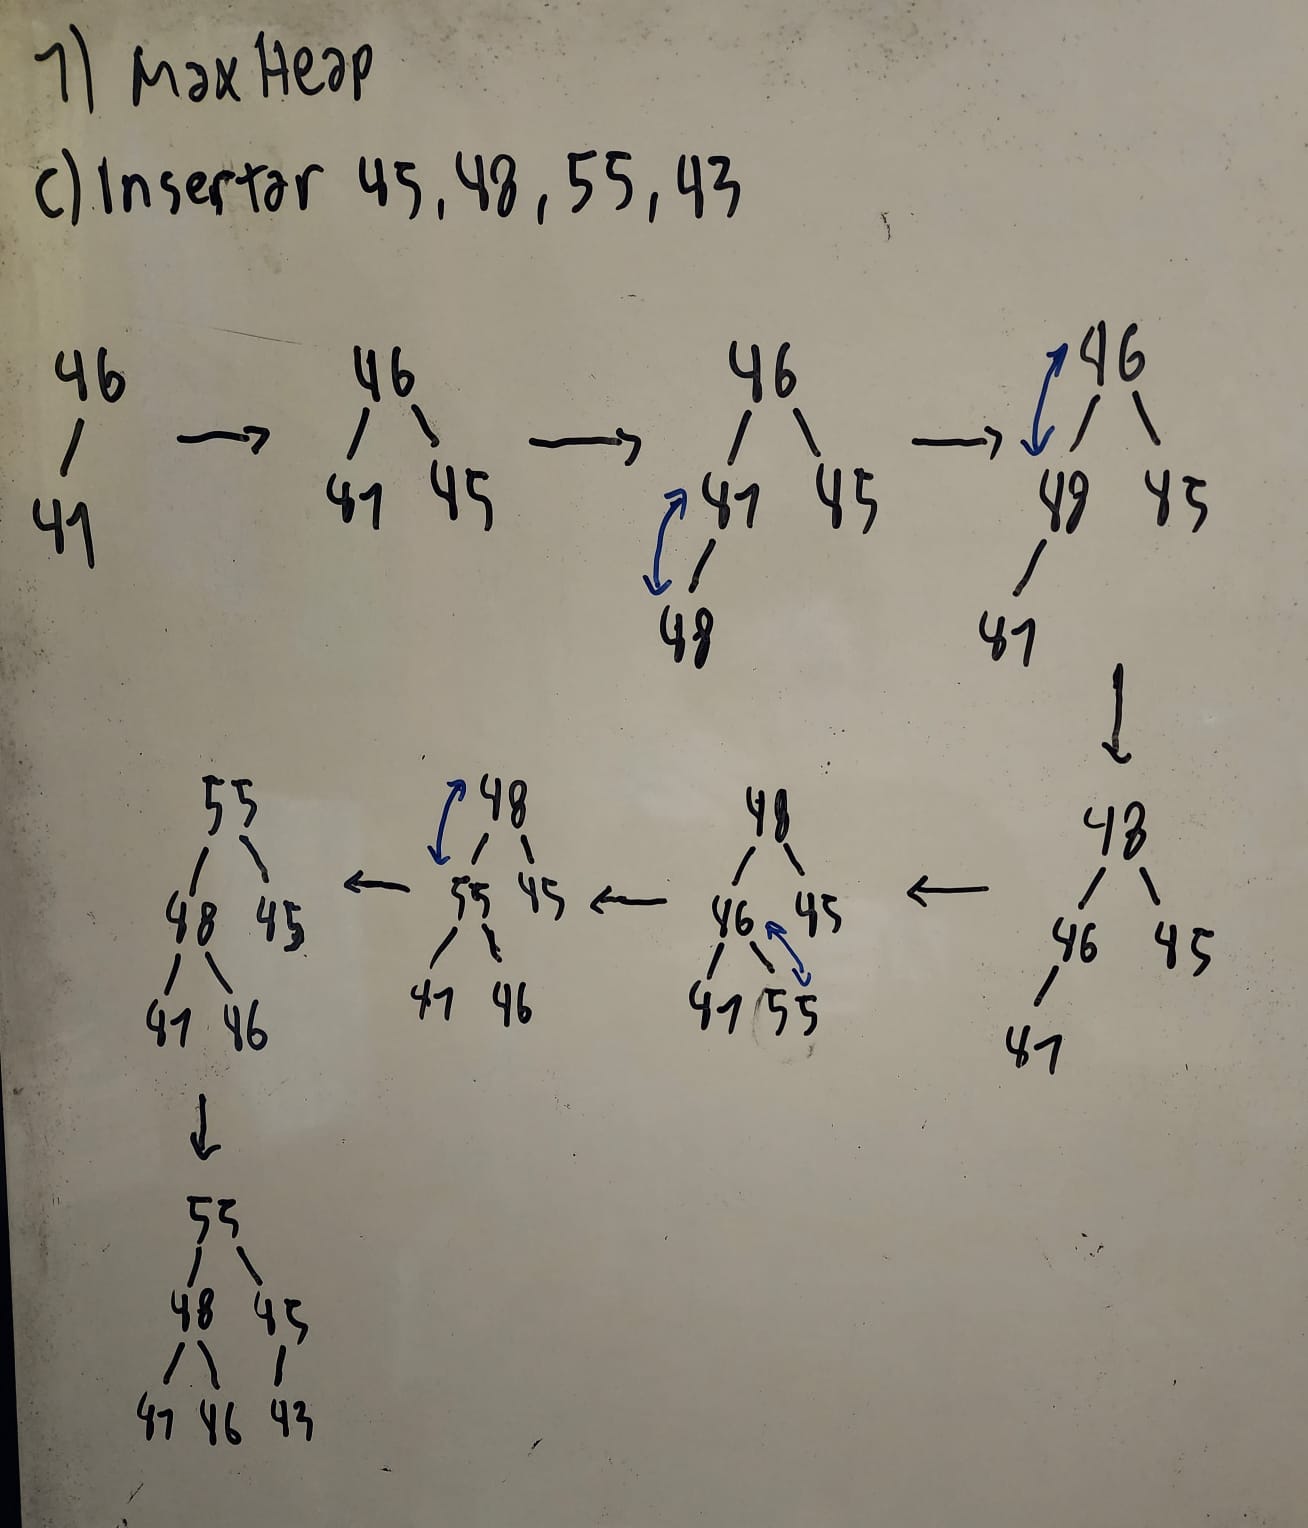 1) Max Heap
c) Insertar 45, 48, 55, 43
46
41
46
41 45
46
41 45
48
46
48 45
41
48
46 45
41
48
46 45
41 55
48
55 45
41 46
55
48 45
41 46
55
48 45
41 46 43